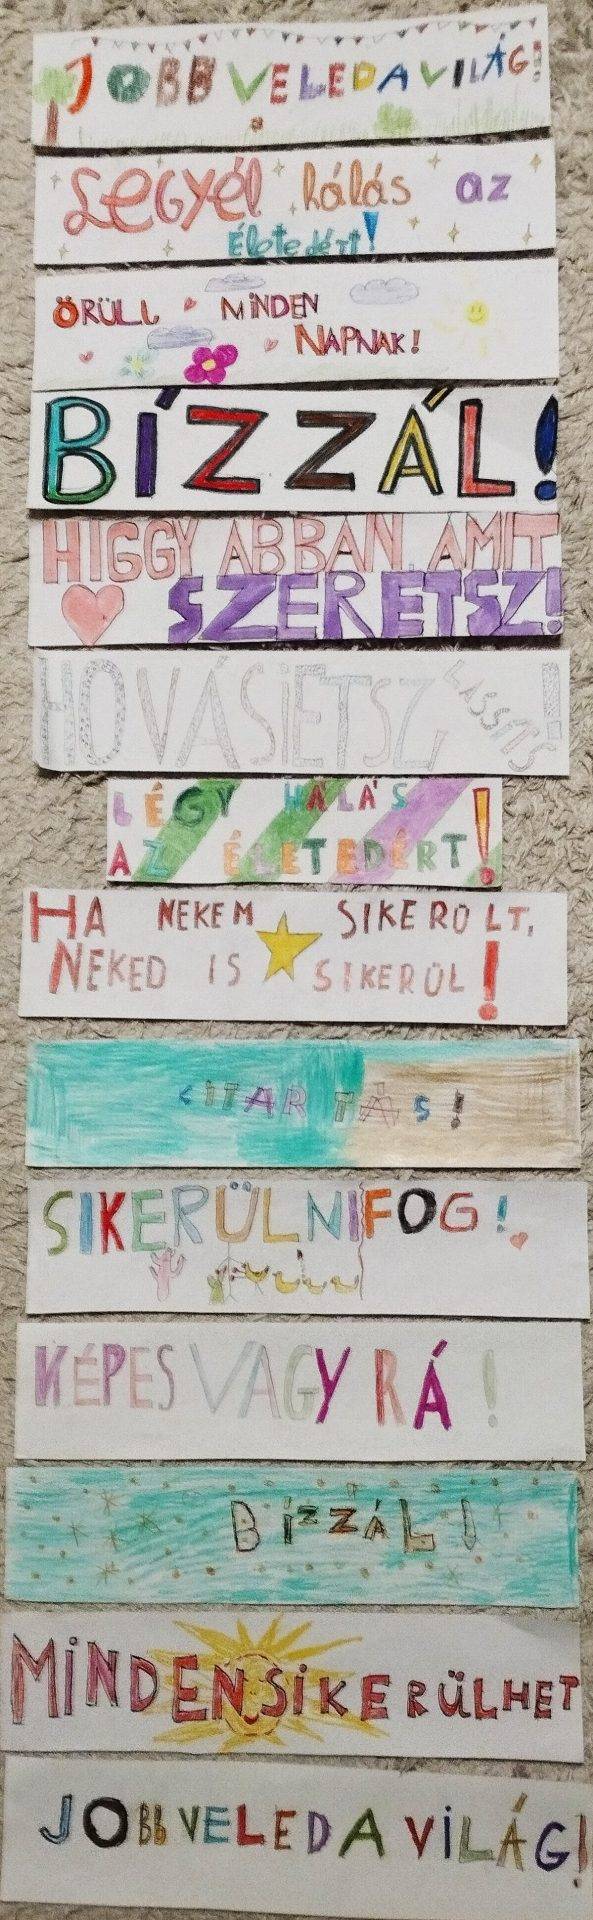 JOBB VELED A VILÁG!
LEGYÉL hálás az
Életedért!
ÖRÜLL MINDEN
NAPNAK!
BÍZZÁL!
HIGGY ABBAN AMIT
SZERETSZ!
HOVÁ SIETSZ LASSÍTS!
LÉGY HÁLÁS
AZ ÉLETEDÉRT!
HA NEKEM SIKERÜLT,
NEKED IS SIKERÜL!
KITARTÁS!
SIKERÜLNI FOG!
KÉPES VAGY RÁ!
BÍZZÁL!
MINDEN SIKERÜLHET
JOBB VELED A VILÁG!